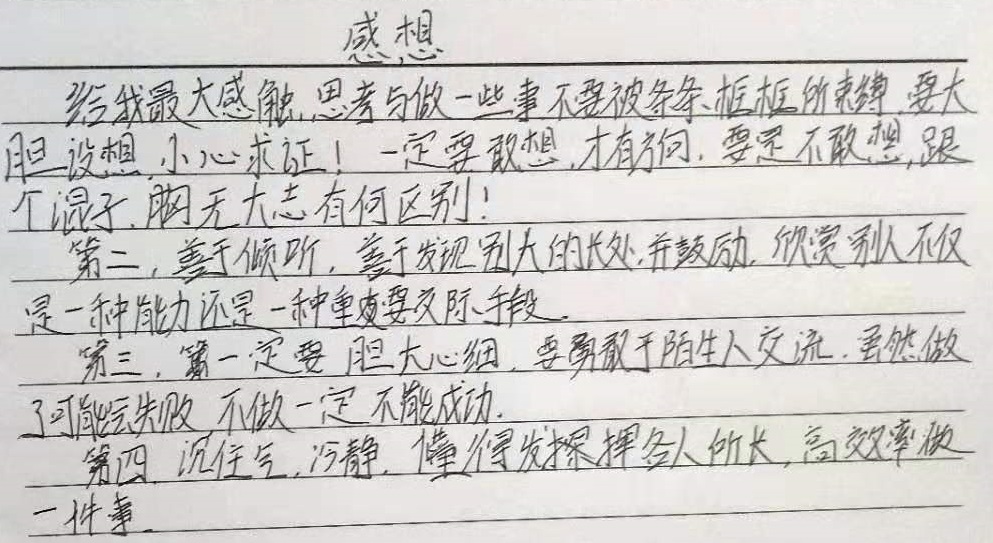 感想
给我最大感触,思考与做一些事不要被条条、框框所束缚,要大
胆设想,小心求证!一定要敢想,才有方向,要是不敢想,跟
个混子,胸无大志有何区别!
第二,善于倾听,善于发现别人的长处,并鼓励,欣赏别人不仅
是一种能力还是一种重要交际手段。
第三,一定要胆大心细,要勇敢于陌生人交流,虽然做
了可能会失败,不做一定不能成功.
第四,沉住气,冷静,懂得发挥各人所长,高效率做
一件事.